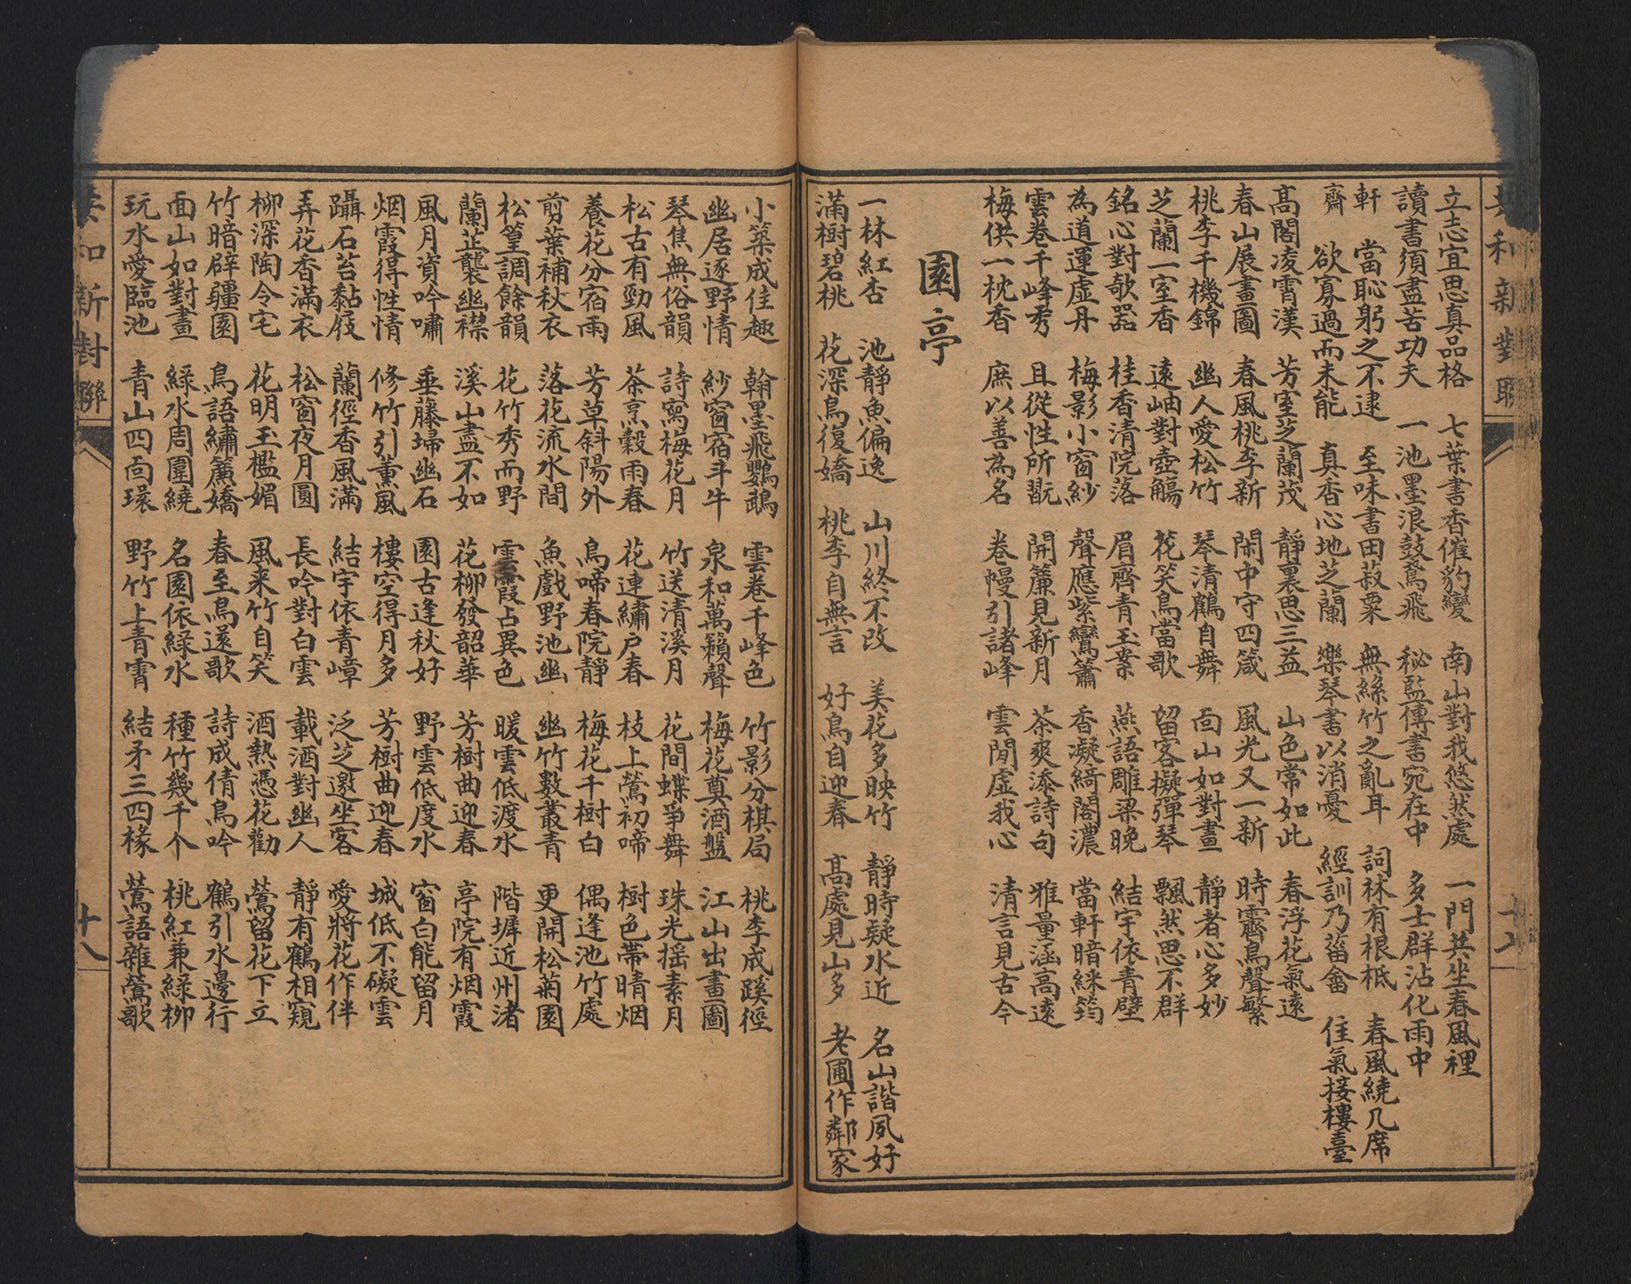 立志宜思真品格 七葉書香催豹變 南山對我悠然處 一門共坐春風裡
讀書須盡苦功夫 一池墨浪鼓鴛飛 秘監傳書宛在中 多士群沾化雨中
軒 當恥躬之不逮 至味書田菽粟 無絲竹之亂耳 詞林有根柢 春風繞几席
齋 欲寡過而未能 真香心地芝蘭 樂琴書以消憂 經訓乃菑畬 佳氣接樓臺
高閣凌霄漢 芳室芝蘭茂 靜裏思三益 山色常如此 春浮花氣遠
春山展畫圖 春風桃李新 閑中守四箴 風光又一新 時霽鳥聲繁
桃李千機錦 幽人愛松竹 琴清鶴自舞 面山如對畫 靜者心多妙
芝蘭一室香 遠岫對壺觴 花笑鳥當歌 留客擬彈琴 飄然思不群
銘心對欹器 桂香清院落 眉齊青玉案 燕語雕梁晚 結宇依青壁
為道運虛丹 梅影小窗紗 聲應紫鸞簫 香凝綺閣濃 當軒暗綠筠
雲卷千峰秀 且從性所翫 開簾見新月 茶爽添詩句 雅量涵高遠
梅供一枕香 庶以善為名 卷幔引諸峰 雲閒虛我心 清言見古今
園亭
一林紅杏 池靜魚偏逸 山川終不改 美花多映竹 靜時疑水近 名山諧夙好
滿樹碧桃 花深鳥復嬌 桃李自無言 好鳥自迎春 高處見山多 老圃作鄰家
共和新對聯
小築成佳趣 翰墨飛鸚鵡 雲卷千峰色 竹影分棋局 桃李成蹊徑
幽居逐野情 紗窗宿斗牛 泉和萬籟聲 梅花奠酒盤 江山出畫圖
琴焦無俗韻 詩寫梅花月 竹送清溪月 花間蝶爭舞 珠光搖素月
松古有勁風 茶烹穀雨春 花連繡户春 枝上鶯初啼 樹色帶晴烟
養花分宿雨 芳草斜陽外 鳥啼春院靜 梅花千樹白 偶逢池竹處
剪葉補秋衣 落花流水間 魚戲野池幽 幽竹數叢青 更開松菊園
松篁調餘韻 花竹秀而野 雲霞占異色 暖雲低渡水 階墀近州渚
蘭茝襲幽襟 溪山盡不如 花柳發韶華 芳樹曲迎春 亭院有烟霞
風月資吟嘯 垂藤埽幽石 園古逢秋好 野雲低度水 窗白能留月
烟霞得性情 修竹引薰風 樓空得月多 芳樹曲迎春 城低不礙雲
躡石苔黏屐 蘭徑香風滿 結宇依青嶂 泛芝邀坐客 愛將花作伴
弄花香滿衣 松窗夜月圓 長吟對白雲 載酒對幽人 靜有鶴相窺
柳深陶令宅 花明玉檻媚 風來竹自笑 酒熱憑花勸 鶯留花下立
竹暗辟疆園 鳥語繡簾嬌 春至鳥還歌 詩成倩鳥吟 鶴引水邊行
面山如對畫 綠水周圍繞 名園依綠水 種竹幾千个 桃紅兼綠柳
玩水愛臨池 青山四面環 野竹上青霄 結矛三四椽 鶯語雜鶯歌
共和新對聯 十八